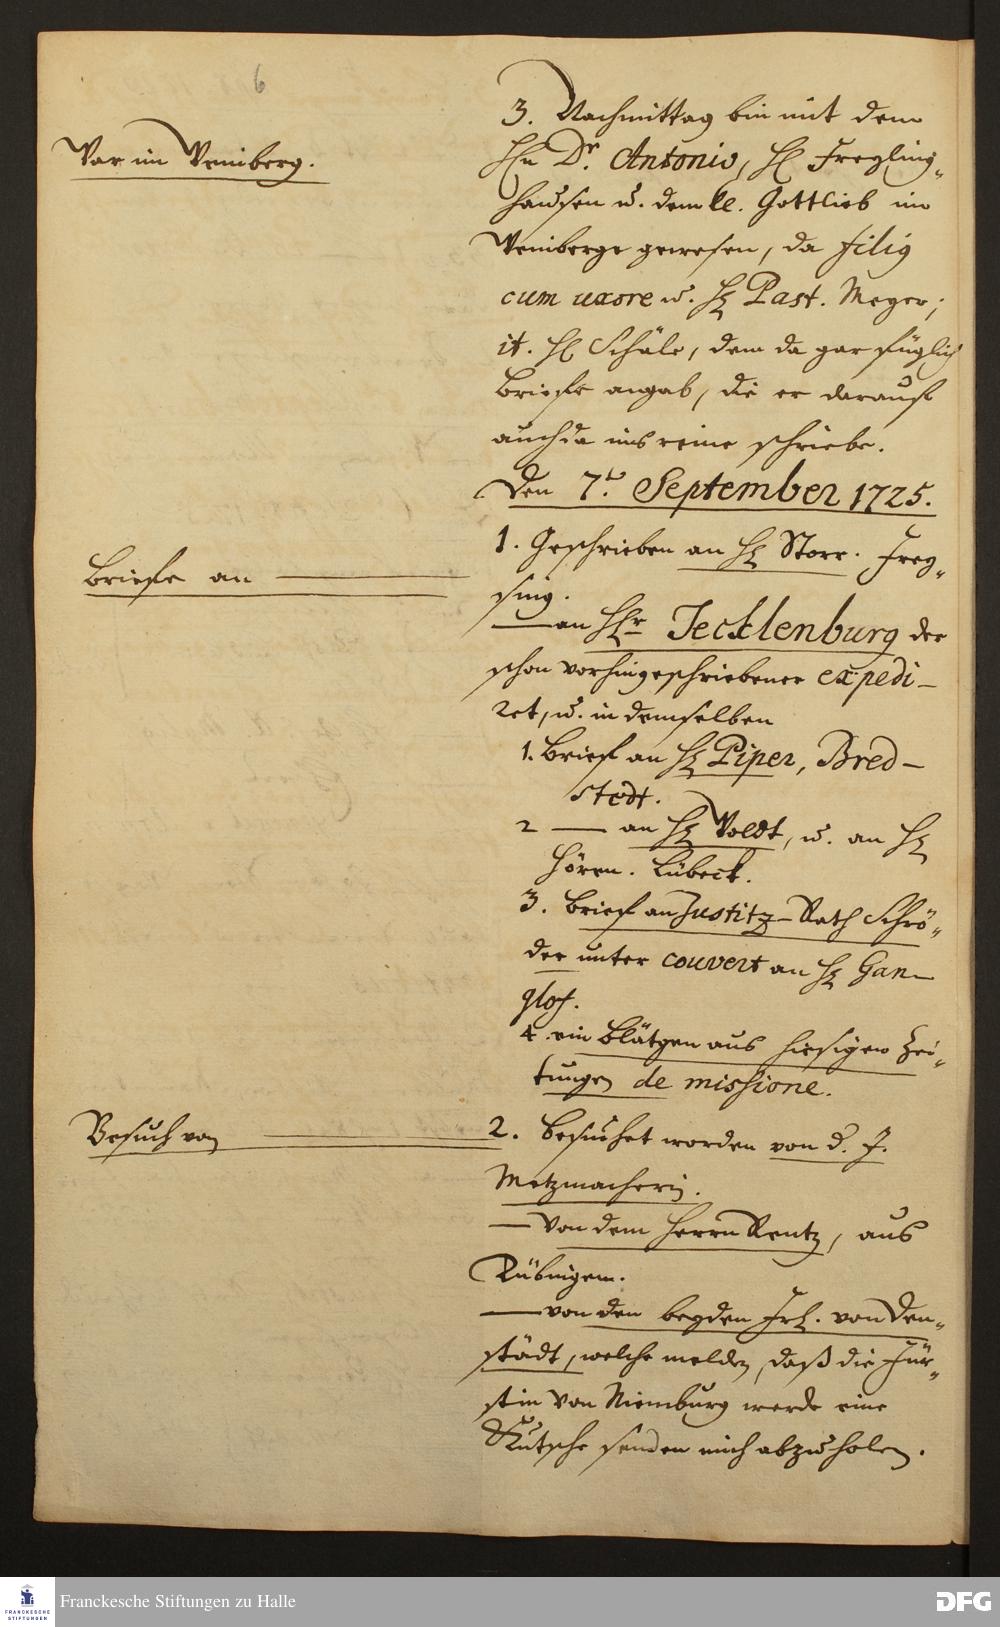 6
War im Weinberg.
3. Nachmittag bin mit dem
HEn Dr. Antonio, H Freyling,,
hausen u. dem kl. Gottlieb im
Weinberge gewesen, da filig
cum uxore u. H Past. Meyer;
it. H Schäle, dem da gar füglich
Briefe angab, die er darauf
auch da ins reine schriebe.
Den 7t. September 1725.
Briefe an
1. Geschrieben an H Storr. Frey,,
sing.
— an HEr Tecklenburg der
schon vorhin geschriebener expedi-
ret, u. in demselben
1. Brief an H Piper, Bred-
stedt.
2 — an H Voldt, u. an H
Hören. Lübeck.
3. Brief an Justitz-Rath Schrö,,
der unter couvert an H Gan-
glof.
4. ein Blätgen aus hiesigen Zei,,
tungen de missione.
Besuch von
2. Besuchet worden von d. J.
Metzmacherin.
— Von dem Herrn Rentz, aus
Tübingen.
— von den beyden Frl. von Den,,
städt, welche melden, daß die Für,,
stin von Nienburg werde eine
Kutsche senden mich abzuholen.
Franckesche Stiftungen zu Halle
FRANCKESCHE
STIFTUNGEN
DFG